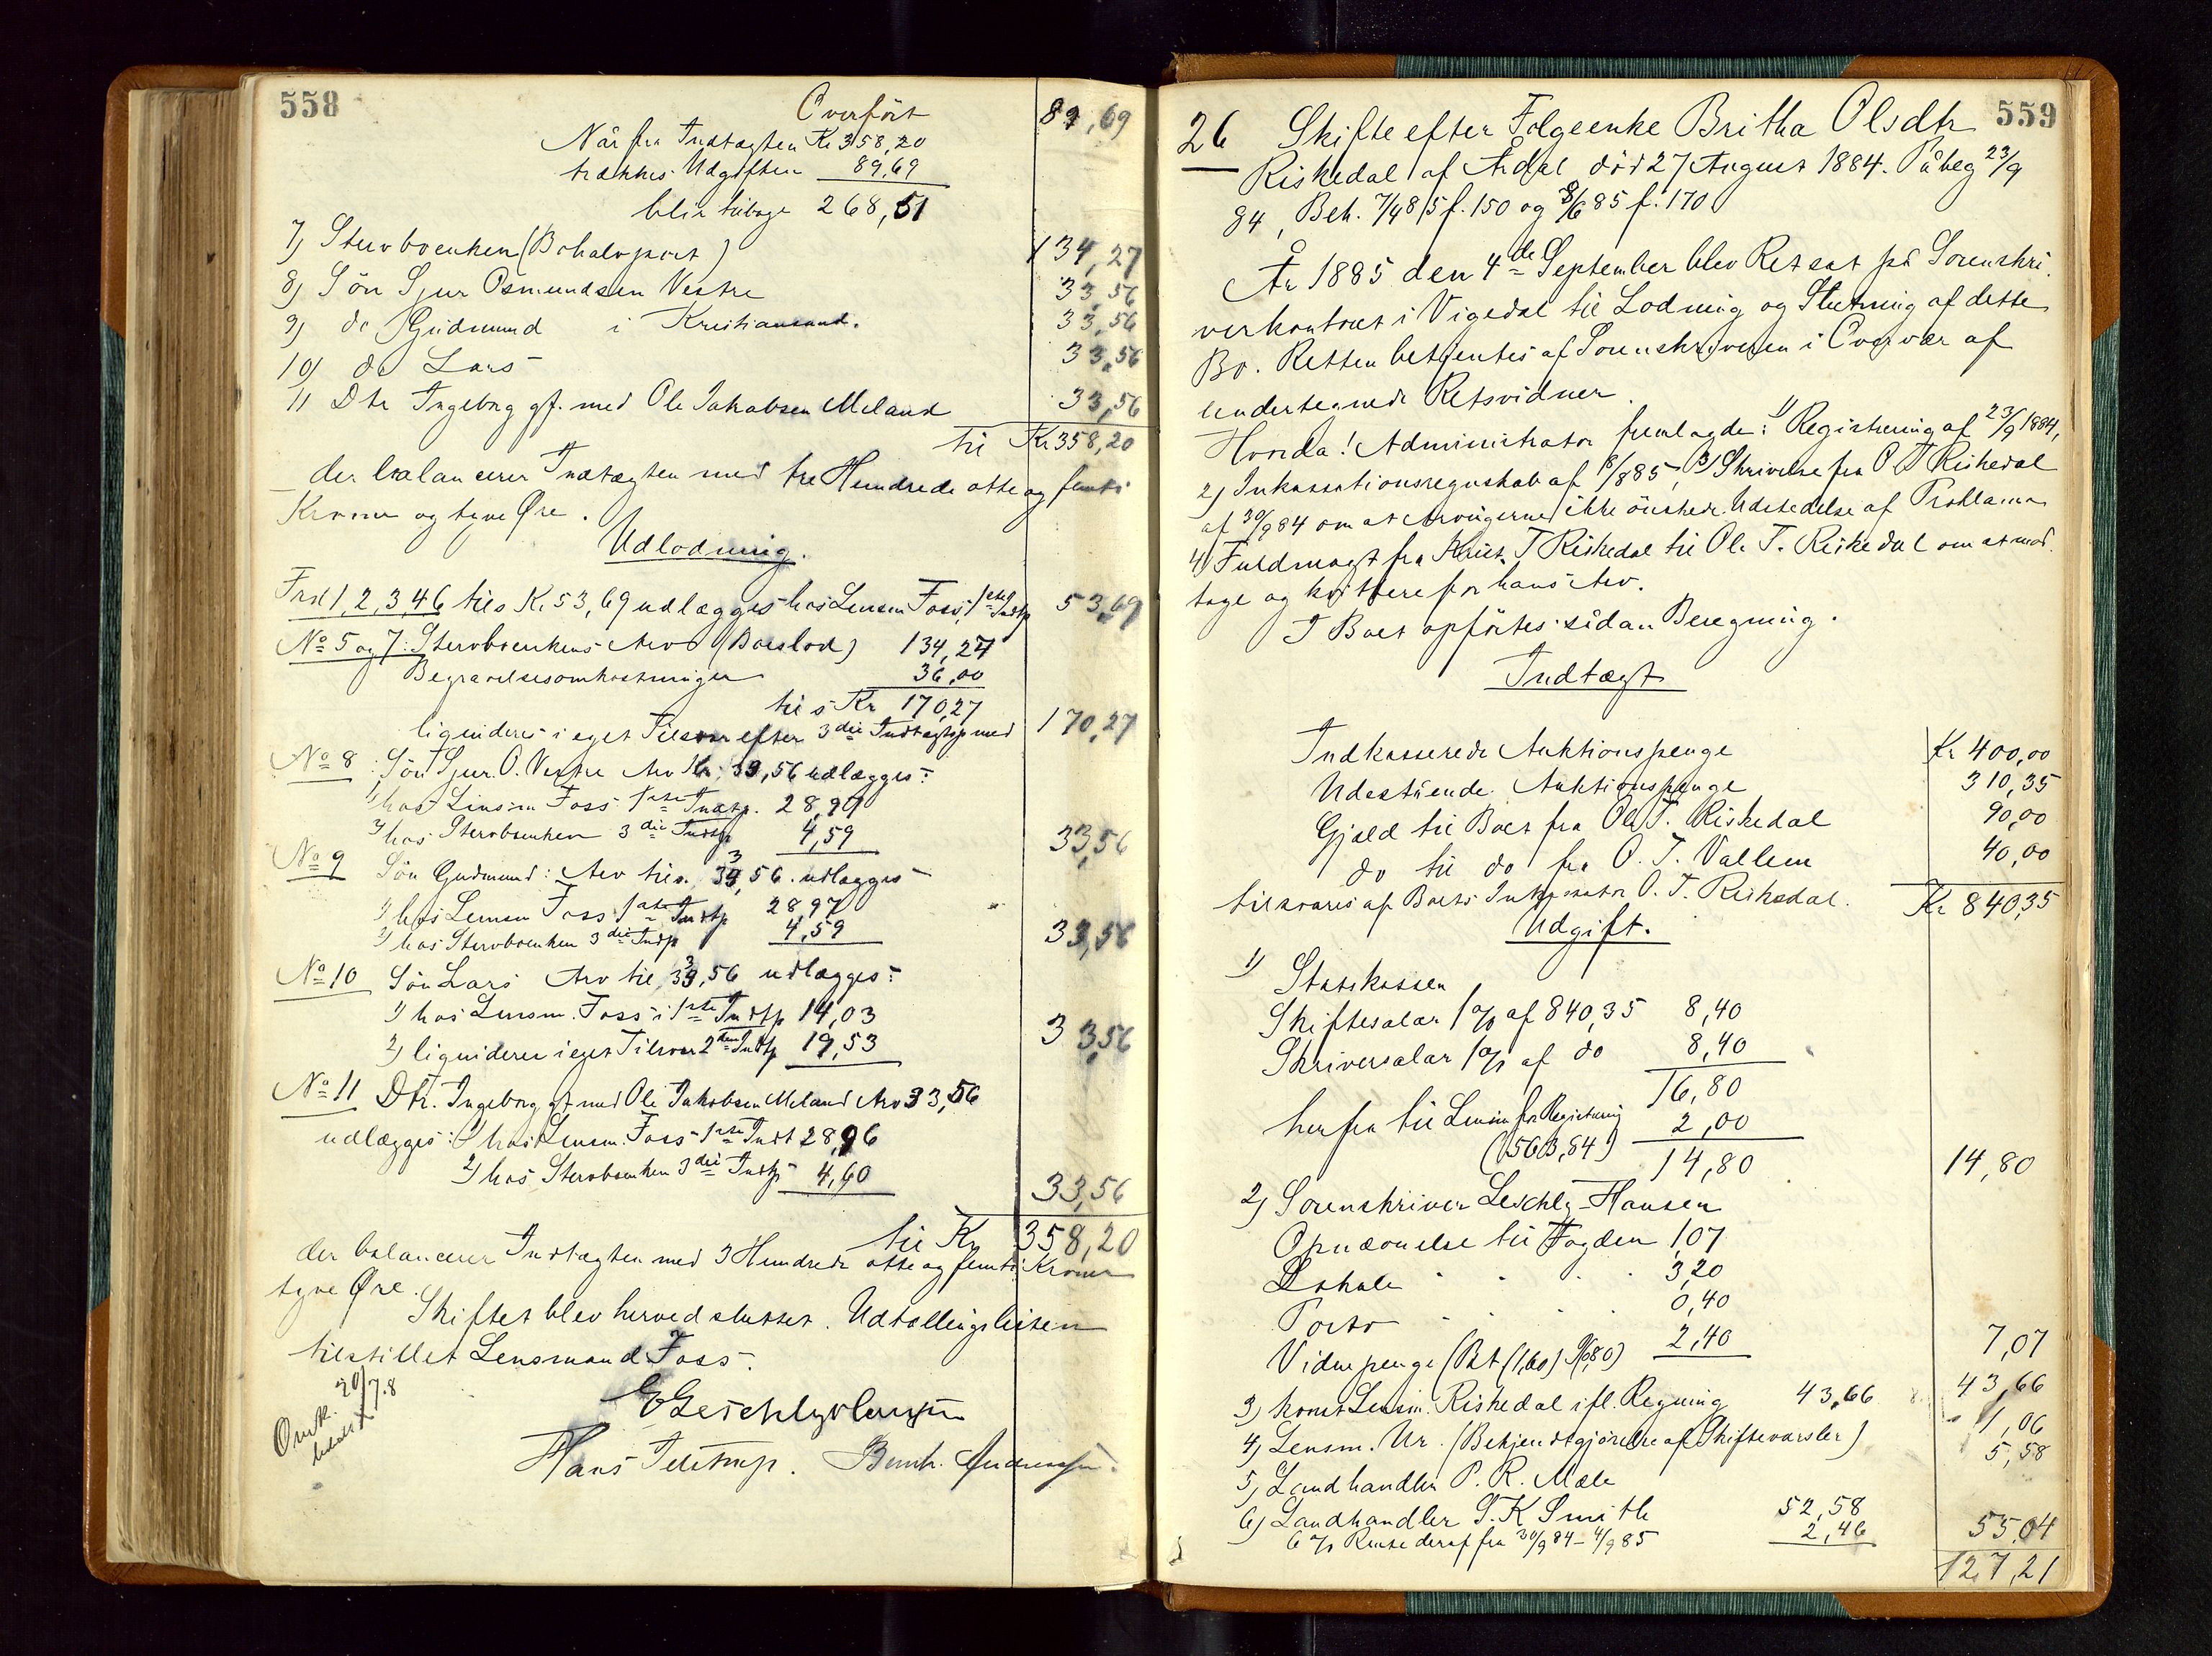 558
Overført 89,69
Når fra Indtægten Kr 358,20
trækkes Udgiften 89,69
blir tilbage 268,51
7) Stervboenken (Bohalvpart) 134,27
8) Søn Sjur Osmundsen Vestre 33,56
9) do Gudmund i Kristiansand. 33,56
10) do Lars 33,56
11 Dtr Ingeborg gf. med Ole Jakobsen Meland 33,56
til Kr 358,20
der balancerer Indtægten med tre Hundrede otte og femti
Kroner og tyve Øre.
Udlodning.
Ford 1, 2, 3, 4 6 tils Kr 53,69 udlægges hos Lensm Foss, 1ste Indtp 53,69
No 5 og 7: Stervboenkens Arv (Boeslod) 134,27
Begravelsesomkostninger 36,00
tils Kr 170,27
liquideres i eget Tilsvar efter 3die Indtægtsp med 170,27
No 8 Søn Sjur O. Vestre Arv Kr. 33,56 udlægges:
1) hos Lensm Foss 1ste Indtp. 28,97
2) hos Stervboenken 3die Indtp 4,59 33,56
No 9 Søn Gudmund: Arv tils. 33,56 udlægges
1) hos Lensm Foss 1ste Indtp 28,97
2) hos Stervboenken 3die Indtp 4,59 33,56
No 10 Søn Lars Arv til 33,56 udlægges:
1) hos Lensm. Foss i 1ste Indtp 14,03
2) liquideres i eget Tilsvar 2den Indtp 19,53 33,56
No 11 Dtr. Ingeborg gf med Ole Jakobsen Meland Arv 33,56
udlægges: 1) hos Lensm. Foss 1ste Indt 28,96
2) hos Stervboenken 3die Indtp 4,60 33,56
til Kr 358,20
der balancerer Indtægten med 3 Hundrede otte og femti Kroner
tyve Øre.
Skiftet blev herved sluttet. Udtællingslisten
tilstillet Lensmand Foss.
20/7.8
Hans Teletrup. Bernh. Andersen.
559
26 Skifte efter Følgeenke Britha Olsdtr
Riskedal af Årdal død 27 August 1884. Påbeg 23/9
84, Beh. 7/4 85 f. 150 og 8/6 85 f. 170
År 1885 den 4de September blev Ret sat på Sorenskri-
verkontoret i Vigedal til Lodning og Slutning af dette
Bo. Retten betjentes af Sorenskriveren i Overvær af
undertegnede Retsvidner.
Hvorda! Administrator fremlagde: 1) Registrering af 23/9 1884,
2) Inkassationsregnskab af 18/8 85, 3) Skrivelse fra O T Riskedal
af 30/9 84 om at Arvingerne ikke ønsker Udstedelse af Proklama
4) Fuldmagt fra Krist. T Riskedal til Ole T. Riskedal om at mod-
tage og kvittere for hans Arv.
I Boet opførtes sådan Beregning.
Indtægt
Indkasserede Auktionspenge Kr 400,00
Udestående Auktionspenge 310,35
Gjæld til Boet fra Ole T. Riskedal 90,00
do til do fra O. T. Vallem 40,00
tilsvares af Boets Inkassator O. T. Riskedal. Kr 840,35
Udgift.
1) Statskassen
Skiftesalær 1 % af 840,35 8,40
Skriversalær 1 % af do 8,40
16,80
herfra til Lensm for Registrering 2,00
(563,84) 14,80 14,80
2) Sorenskriver Leschly-Hansen
Opnævnelse til Fogden 1,07
Lokale 3,20
Porto 0,40
Vidnepenge (Bet (1,60) 0,80) 2,40 7,07
3) konst Lensm. Riskedal ifl. Regning 43,66 43,66
4) Lensm. Ur. (Bekjendtgjørelse af Skiftevarsler) 1,06
5) Landhandler P. R. Mæle 5,58
6) Landhandler S. K Smith 52,58
6 % Rente deraf fra 30/9 84 - 4/9 85 2,46 55,04
127,21